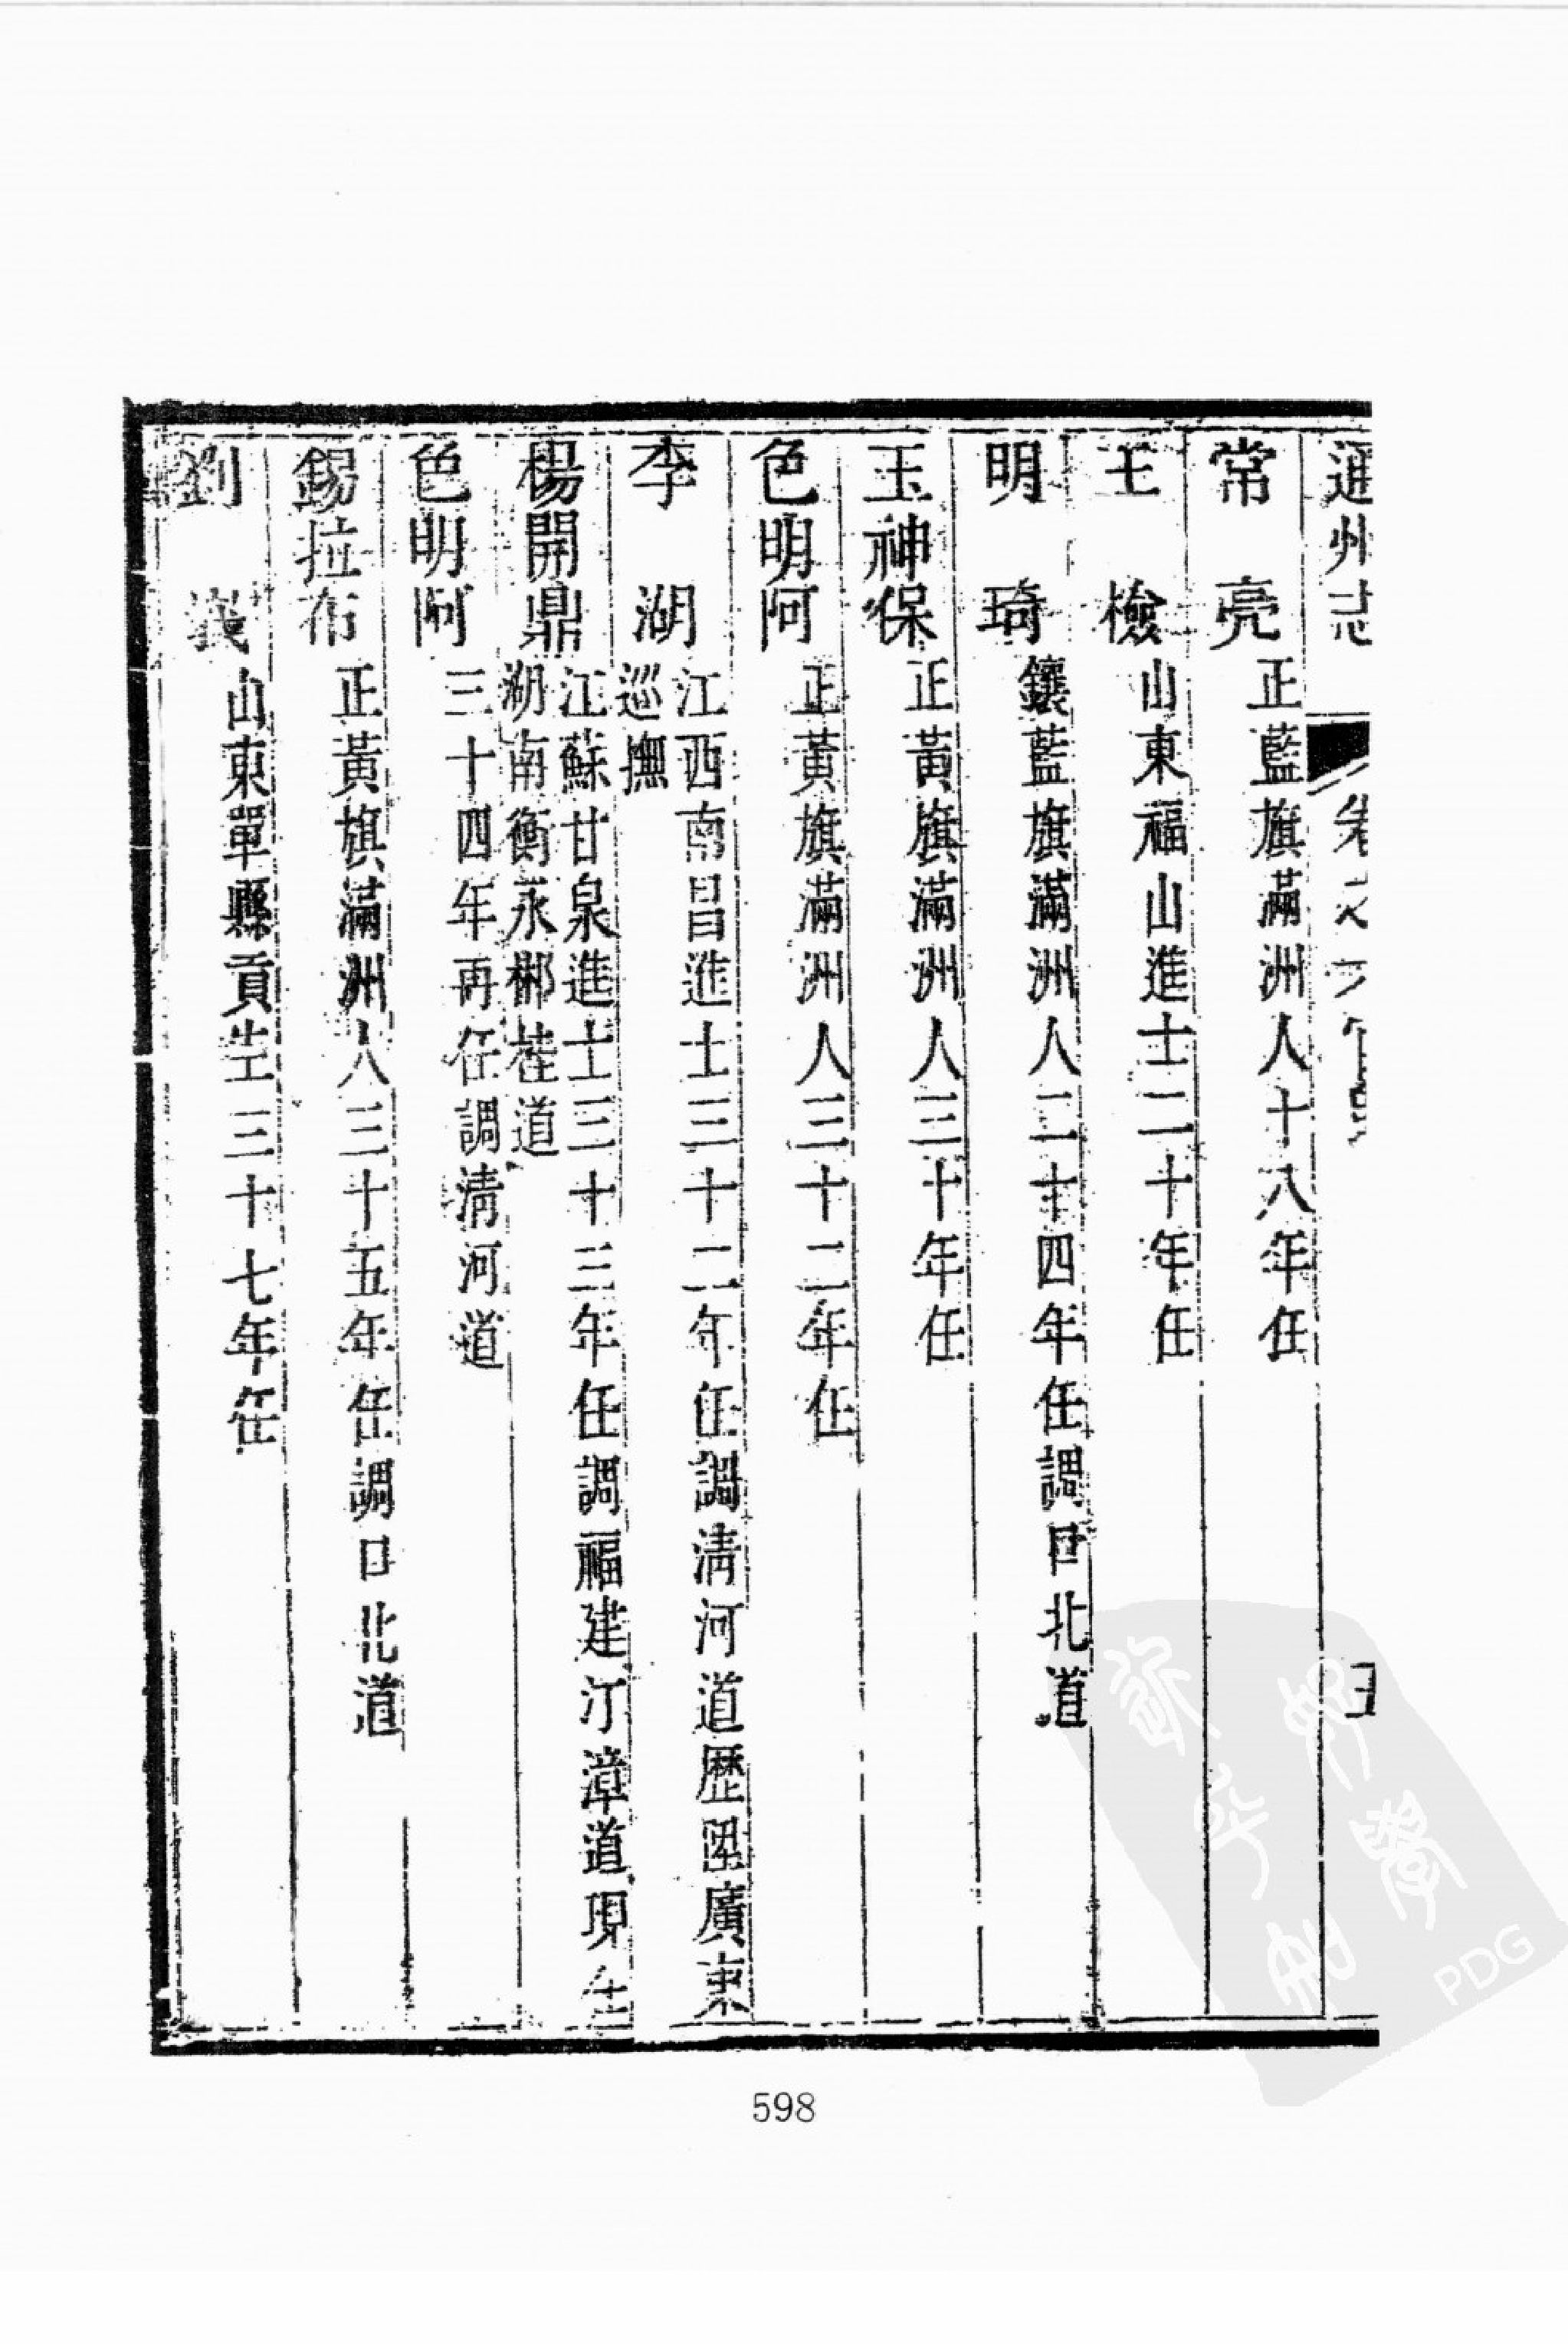 通州志 卷之六 官
常亮 正藍旗滿洲人十八年任
王檢 山東福山進士二十年任
明琦 鑲藍旗滿洲人二十四年任調口北道
玉神保 正黃旗滿洲人三十年任
色明阿 正黃旗滿洲人三十二年任
李湖 江西南昌進士三十二年任調清河道歷陞廣東
巡撫
楊開鼎 江蘇甘泉進士三十三年任調福建汀漳道現任
湖南衡永郴桂道
色明阿 三十四年再任調清河道
錫拉布 正黃旗滿洲人三十五年任調口北道
劉峩 山東單縣貢生三十七年任
598
PDG